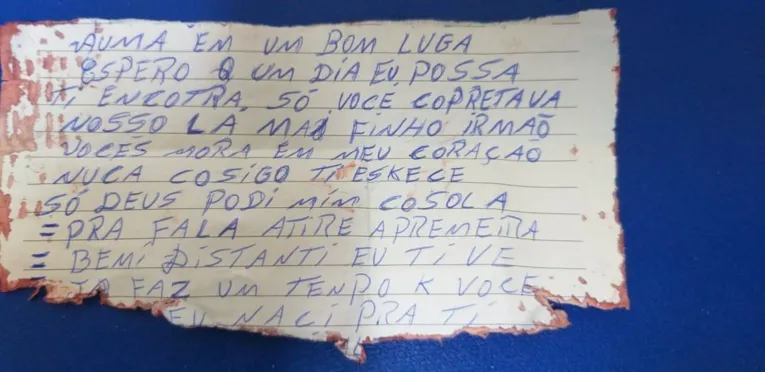 AUMA EM UM BOM LUGA
ESPERO Q UM DIA EU POSSA
TI ENCOTRA, SÓ VOCÊ COPRETAVA
NOSSO LÁ MAI FINHO IRMAÕ
VOCES MORA EM MEU CORAÇAO
NUCA COSIGO TI ESKECE
SÓ DEUS PODI MIM COSOLA
= PRA FALA ATIRE APREMEIRA
= BEMI DISTANTI EU TI VE
= JA FAZ UM TENPO K VOCE
EU NACI PRA TI